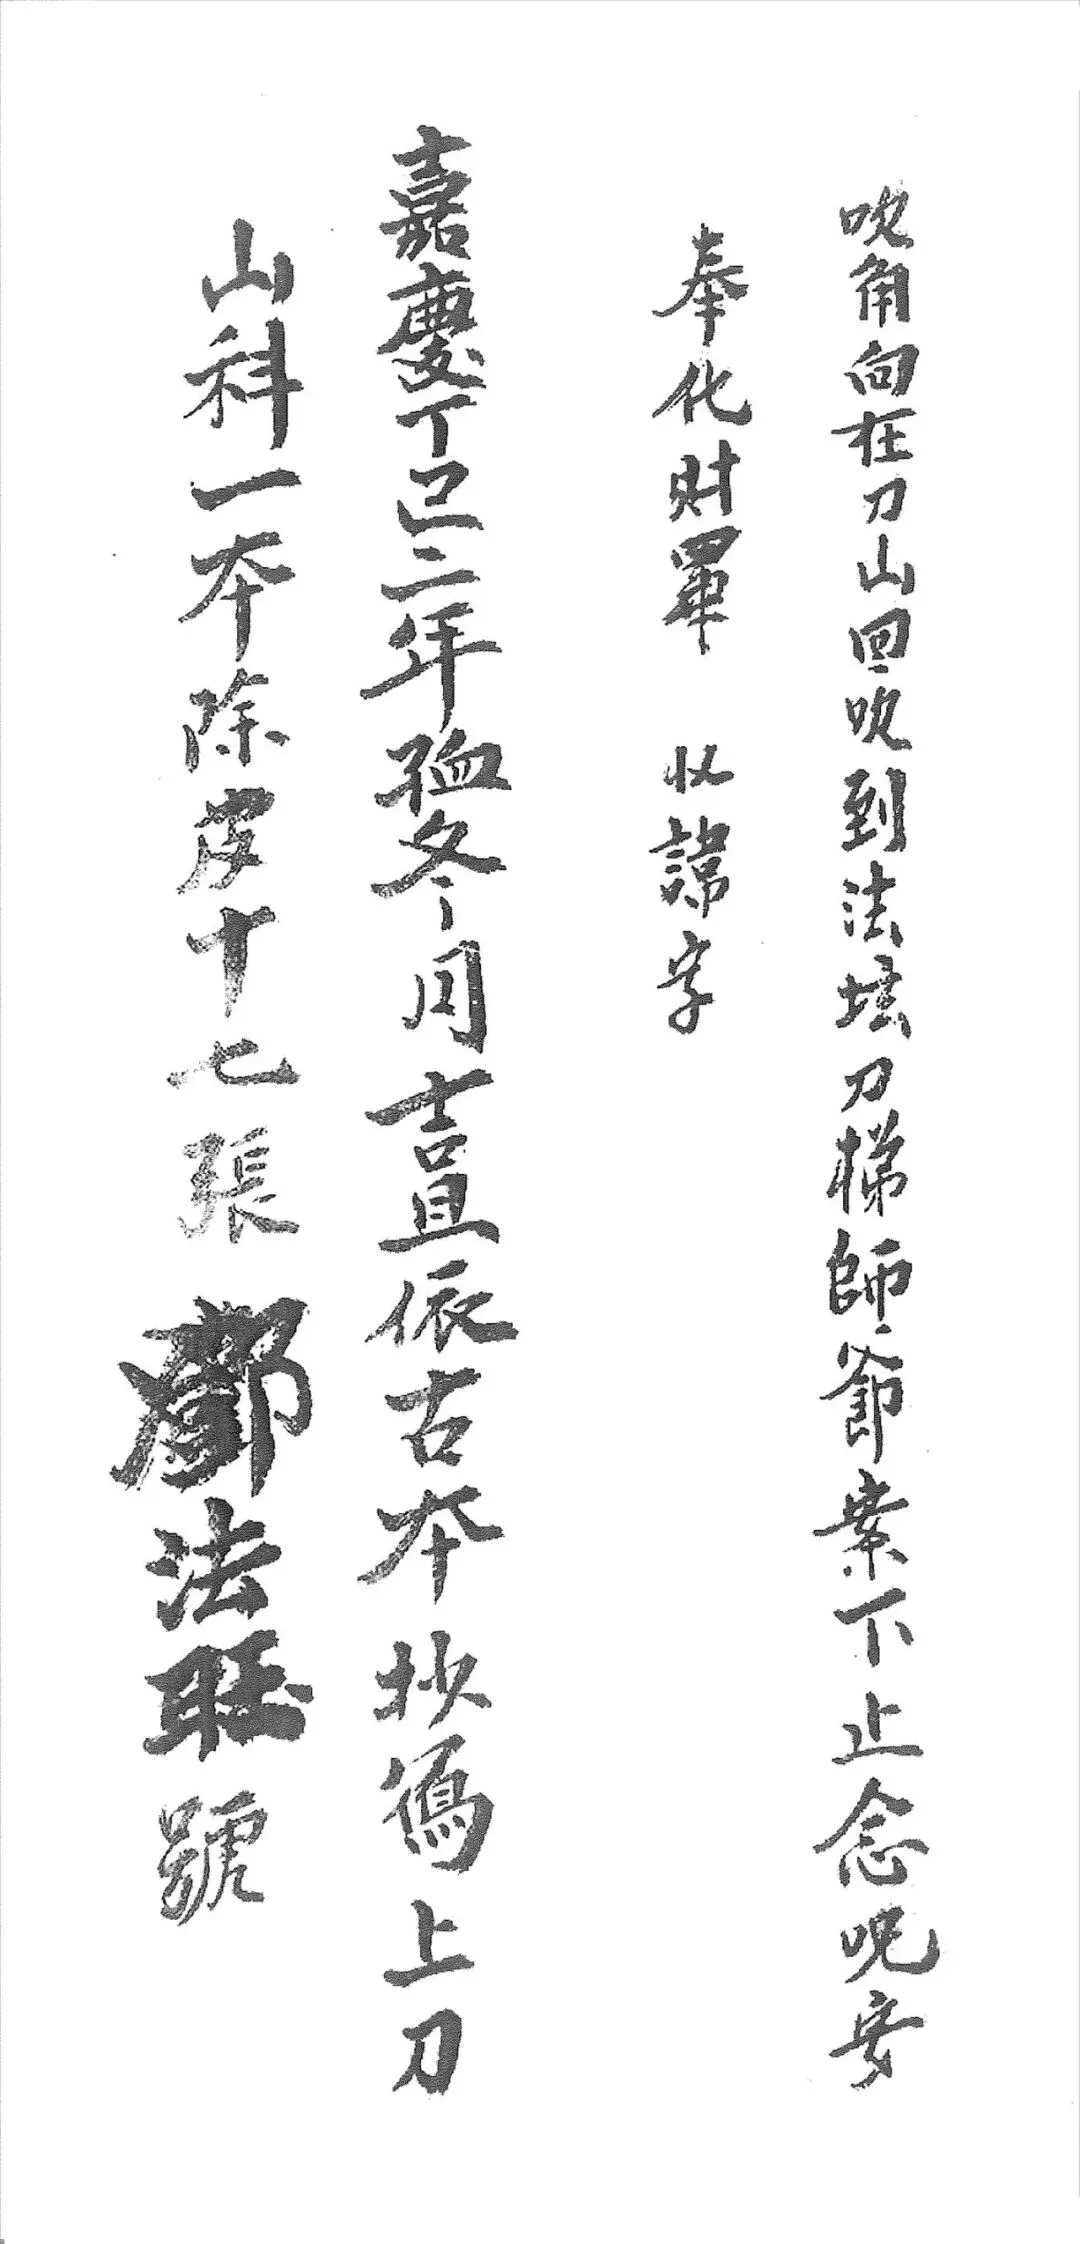 吹角向在刀山回吹到法坛刀梯師爺案下止念呪安
奉化財畢 收諱字
嘉慶丁巳二年孟冬月吉旦依古本抄寫上刀
山科一本除皮十七張 鄺法旺號